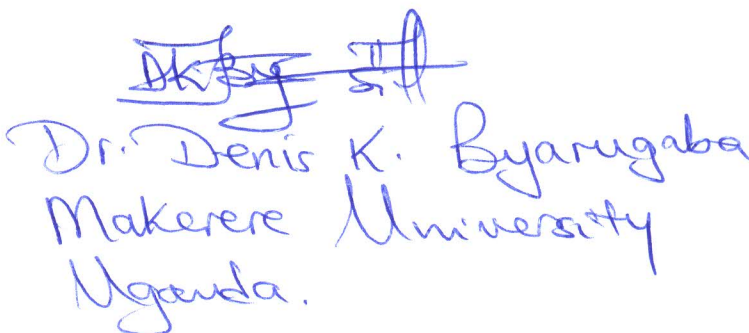 Dr. Denis K. Byarugaba
Makerere University
Uganda.